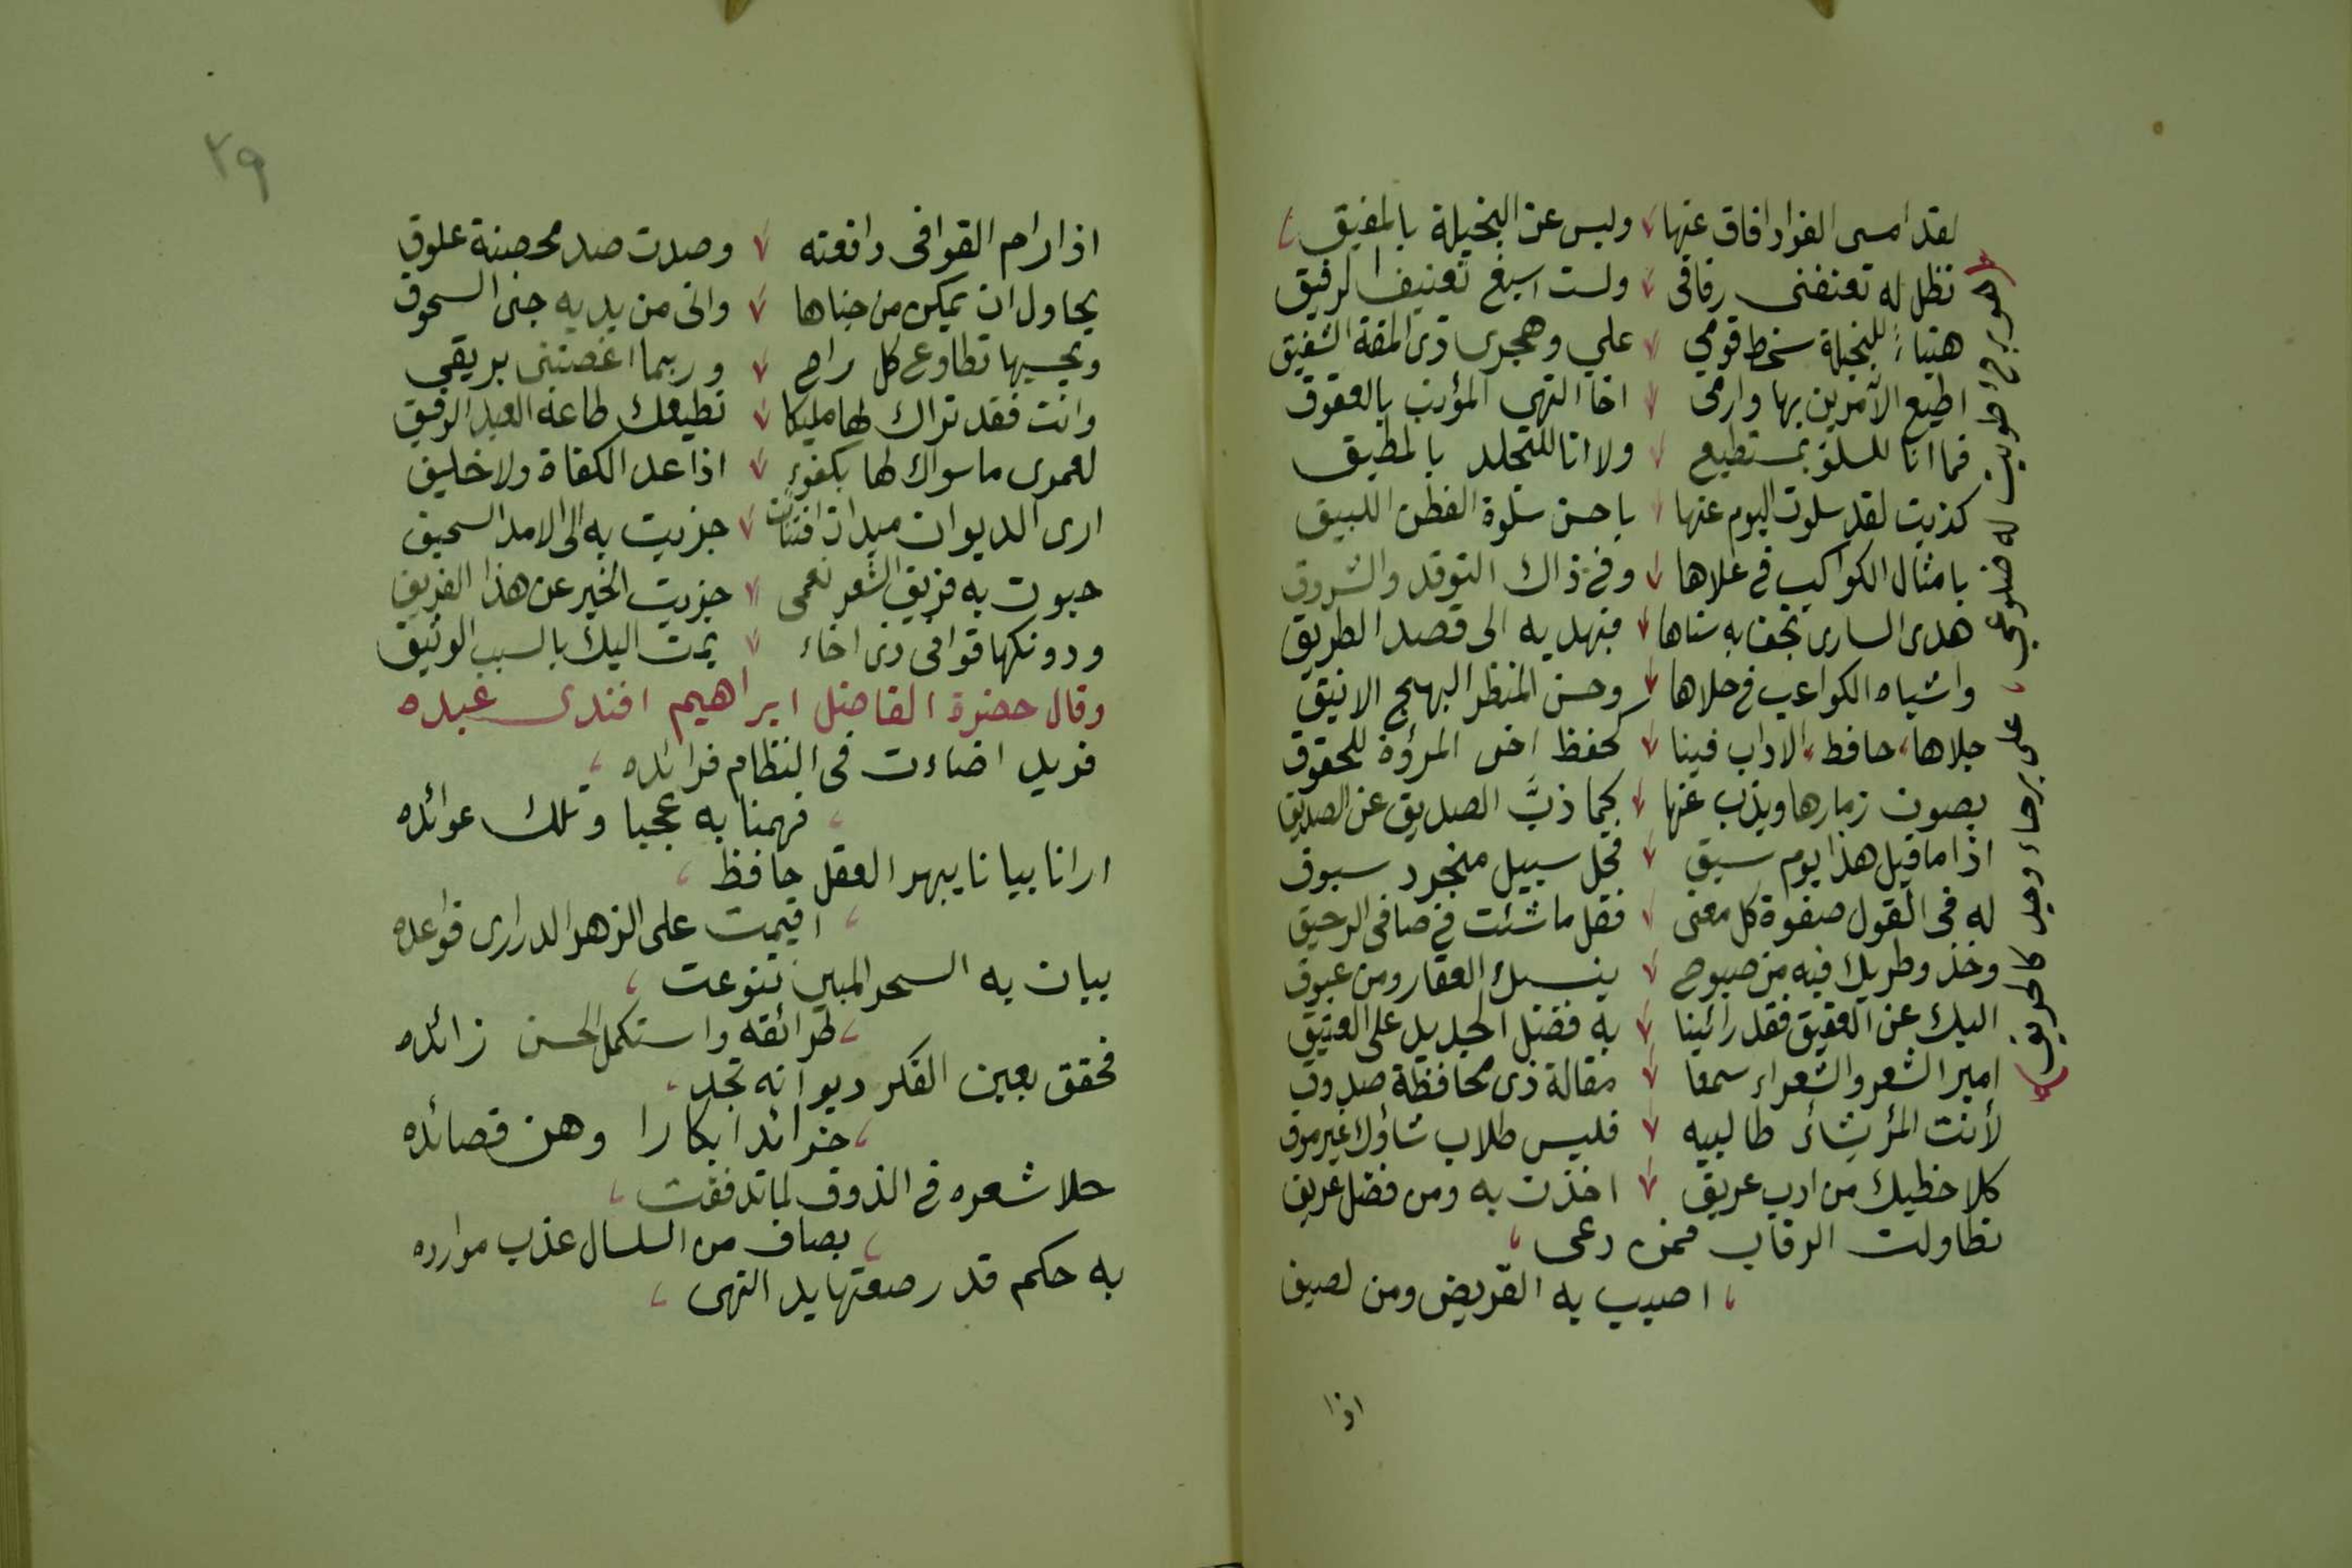 لقد امسى الفواد افاق عنها وليس عن البخيلة بالمفيق
تظل له تعنفنى رفاقى ولست اسيغ تعنيف الرفيق
هنياءً للبخيلة سخط قومي علي وهجرى ذى المقة الشفيق
اطيع الآمرين بها وارمى اخا النهى المؤنب بالعقوق
فما انا للسلو بمستطيع ولا انا للتجلد بالمطيق
كذبت لقد سلوت اليوم عنها باحسن سلوة الفطن اللبيق
بامثال الكواكب فى علاها وفى ذاك التوقد والشروق
هدى السارى تحف به سناها فتهديه الى قصد الطريق
واشباه الكواعب فى حلاها وحسن المنظر البهيج الانيق
جلاها، حافظ، الاداب فينا كحفظ اخى المرؤة للحقوق
يصون زمارها ويذب عنها كما ذبَّ الصديق عن الصديق
اذا ما قيل هذا يوم سبق فخل سبيل منجرد سبوق
له فى القول صفوة كل معنى فقل ما شئت فى صافى الرحيق
وخذ وطريك فيه من صبوح ينسيك العقار ومن غبوق
اليك عن العقيق فقد رائينا به فضل الجديد على العتيق
امير الشعر والشعراء سمعا مقالة ذى محافظة صدوق
لأنت المرؤ يشائى طالبيه فليس طلاب شاؤك غير موق
كلا خطيك من ادب عريق اخذت به ومن فضل عريق
تطاولت الرقاب فمن دعى
اصيب به القريض ومن لصيق
اذا
هوبرح طويت له ضلوعي، على برحاء وجد كالحريق
٢٩
اذا رام القوافى دافعته وصدت صد محصنة علوق
يحاول ان يمكن من جناها وانى من يديه جنى السحوق
ويحسبها تطاوع كل راح وربما اغصتنى بريقي
وانت فقد تراك لها مليكا تطيعك طاعة العبد الرقيق
لعمرى ما سواك لها بكفوءٍ اذا عد الكفاة ولا خليق
ارى الديوان ميدان افتنان جزيت به الى الامد السحيق
حبوت به فريق الشعر نعمى جزيت الخير عن هذا الفريق
ودونكها قوافى ذى اخاء يمت اليك بالسبب الوثيق
وقال حضرة الفاضل ابراهيم افندى عبده
فريد اضاءت فى النظام فرائده
فهمنا به عجبا وتلك عوائده
ارانا بيانا يبهر العقل حافظ
اقيمت على الزهر الدرارى قواعده
بيان به السحر المبين تنوعت
طرائقه واستكمل الحسن زائده
فحقق بعين الفكر ديوانه تجد
خرائد ابكارا وهن قصائده
حلا شعره فى الذوق لما تدفقت
بصاف من السلسال عذب موارده
به حكم قد رصعتها يد النهى